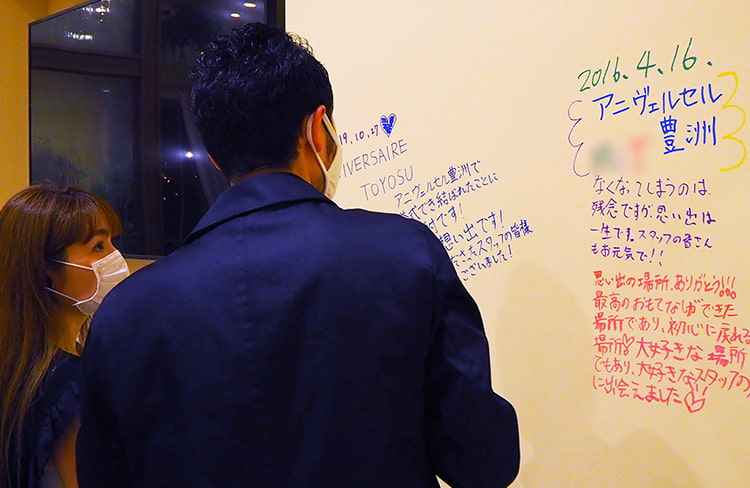 19.10.27
IVERSAIRE
TOYOSU
アニヴェルセル豊洲で
式でき結ばれたことに
です!
想い出です!
さったスタッフの皆様
ございました!
2016.4.16.
アニヴェルセル
豊洲
なくなってしまうのは、
残念ですが、思い出は
一生です。スタッフの皆さん
もお元気で!!
思い出の場所、ありがとう!!!
最高のおもてなしができた
場所であり、初心に戻れる
場所♡大好きな場所
でもあり、大好きなスタッフの
に出会えました♡